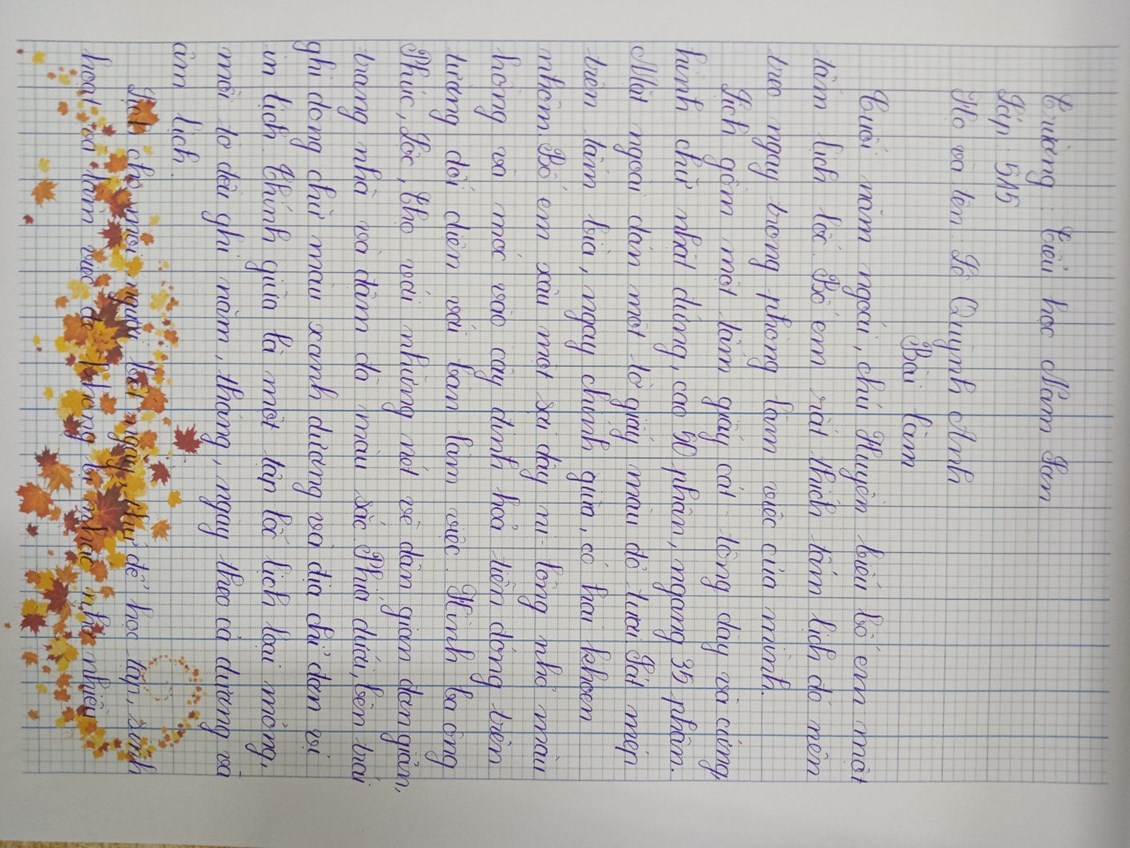 Trường: Tiểu học Nam Sơn
Lớp 5A5
Họ và tên Lê Quỳnh Anh
Bài làm
Cuối năm ngoái, chú Huyên biếu bố em một
tấm lịch lốc. Bố em rất thích tấm lịch đó nên
treo ngay trong phòng làm việc của mình.
Lịch gồm một tấm giấy cát - tông dày và cứng,
hình chữ nhật đứng, cao 50 phân, ngang 35 phân.
Mặt ngoài dán một tờ giấy màu đỏ tươi. Sát mép
trên tấm bìa, ngay chính giữa, có hai khoen
nhôm. Bố em xâu một sợi dây ni - lông nhỏ màu
hồng và móc vào cây đinh hoa tiền đóng trên
tường đối diện với bàn làm việc. Hình ba ông
Phúc, Lộc, Thọ với những nét vẽ dân gian đơn giản,
trang nhã và đậm đà màu sắc. Phía dưới, bên trái
ghi dòng chữ màu xanh dương và địa chỉ đơn vị
in lịch. Chính giữa là một tập lốc lịch loại mỏng,
mỗi tờ đều ghi năm, tháng, ngày theo cả dương và
âm lịch.
Lịch cho mọi người biết ngày, thứ để học tập, sinh
hoạt và làm việc do không bị nhỡ nhiều